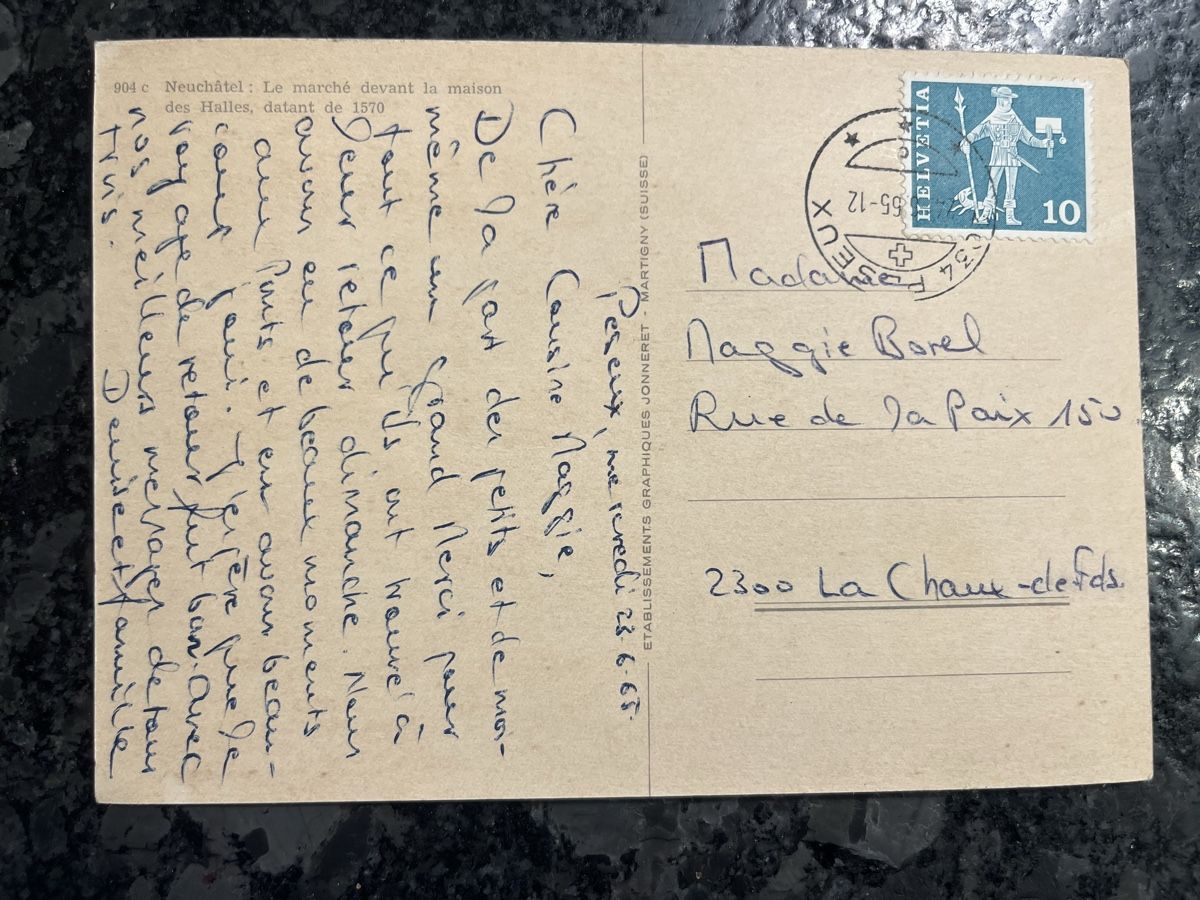 904 c Neuchâtel : Le marché devant la maison
des Halles, datant de 1570
Peseux, mercredi 23-6-65.
Chère Cousine Maggie,
De la part des petits et de moi-
même un grand Merci pour
tout ce qu'ils ont trouvé à
leur retour dimanche. Nous
avons eu de beaux moments
aux Ponts et en avons beau-
coup joui. J'espère que le
voyage de retour fut bon. Avec
nos meilleurs messages de tous
trois.
Denise et famille
ETABLISSEMENTS GRAPHIQUES JONNERET - MARTIGNY (SUISSE)
HELVETIA
10
2034 PESEUX
65-12
Madame
Maggie Borel
Rue de la Paix 150
2300 La Chaux-de-Fds.